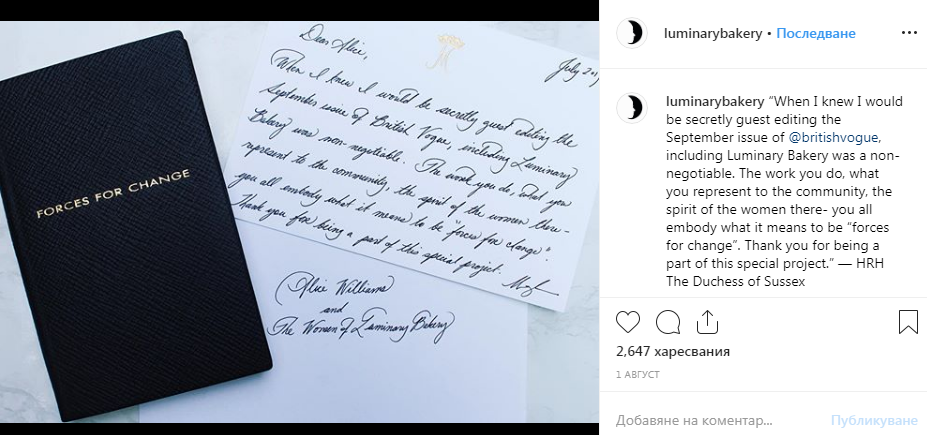 FORCES FOR CHANGE
Dear Alice,
July 201
When I knew I would be secretly guest editing the
September issue of British Vogue, including Luminary
Bakery was non-negotiable. The work you do, what you
represent to the community, the spirit of the women there -
you all embody what it means to be "forces for change".
Thank you for being a part of this special project.
Alice Williams
and
The Women of Luminary Bakery
luminarybakery • Последване
luminarybakery “When I knew I would
be secretly guest editing the
September issue of @britishvogue,
including Luminary Bakery was a non-
negotiable. The work you do, what
you represent to the community, the
spirit of the women there- you all
embody what it means to be “forces
for change”. Thank you for being a
part of this special project.” — HRH
The Duchess of Sussex
2,647 харесвания
1 АВГУСТ
Добавяне на коментар...
Публикуване